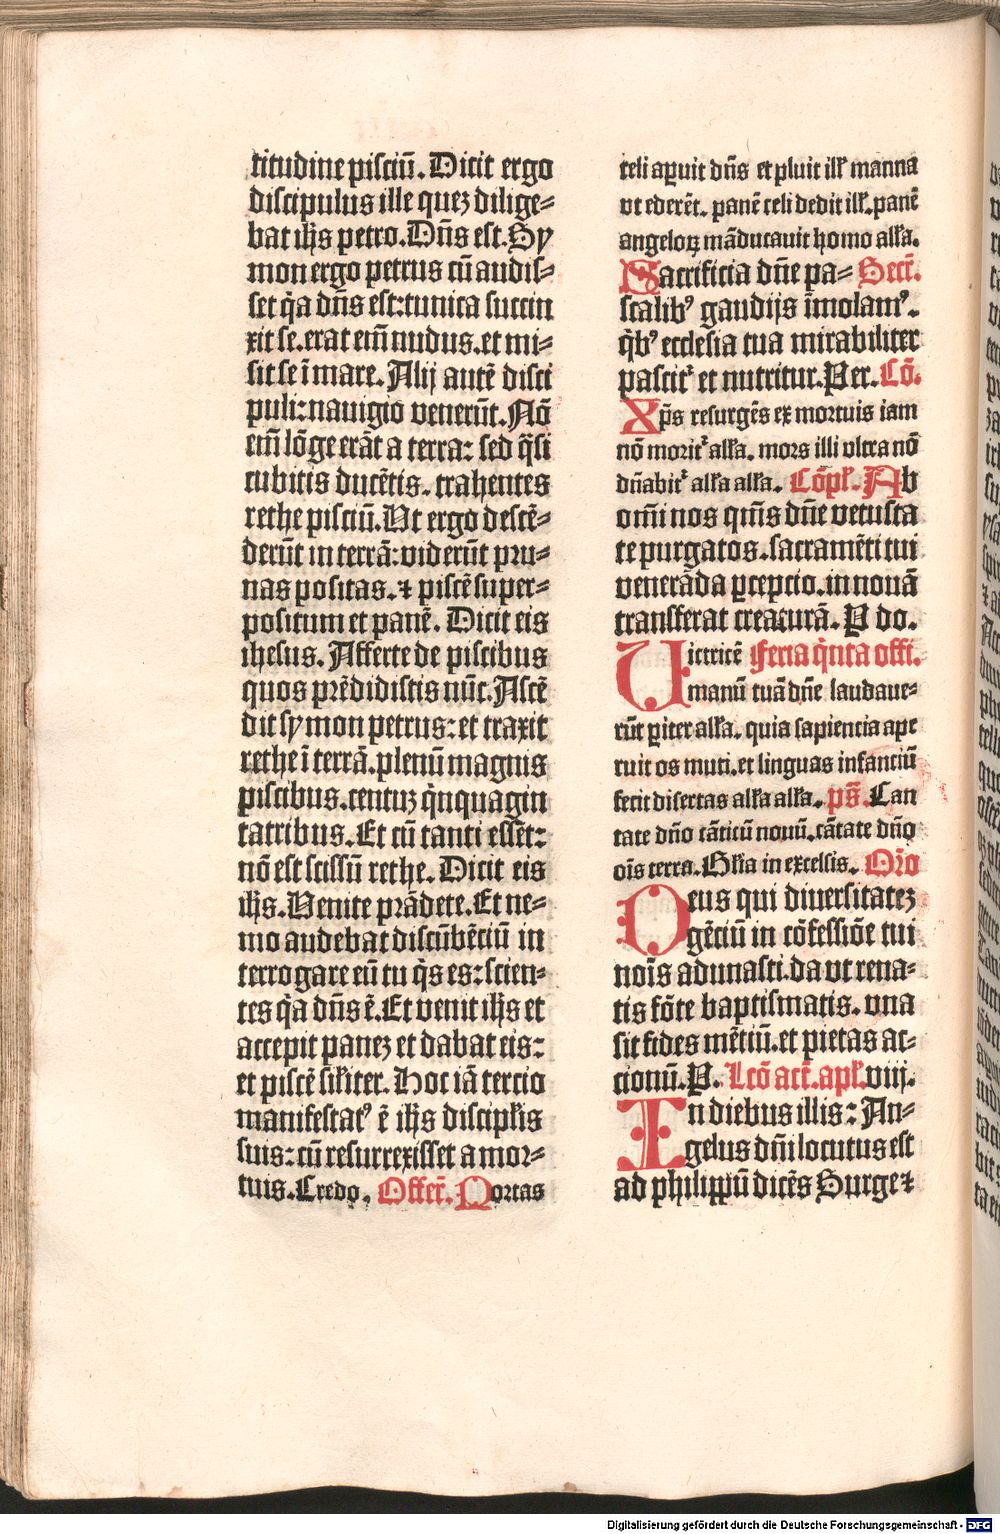 titudine pisciū. Dicit ergo
discipulus ille quez dilige-
bat ihs petro. Dn̄s est. Sy
mon ergo petrus cū audis-
set q̄a dn̄s est: tunica succin
xit se. erat em̄ nudus. et mi-
sit se ī mare. Alij autē disci
puli: nauigio venerūt. Nō
em̄ lōge erāt a terra: sed q̄si
cubitis ducētis. trahentes
rethe pisciū. Ut ergo descē-
derūt in terrā: viderūt pru-
nas positas. ⁊ piscē super-
positum et panē. Dicit eis
ihesus. Afferte de piscibus
quos prēdidistis nūc. Ascē
dit symon petrus: et traxit
rethe ī terrā. plenū magnis
piscibus. centuz q̄nquagin
tatribus. Et cū tanti essēt:
nō est scissū rethe. Dicit eis
ihs. Uenite prādete. Et ne-
mo audebat discūbēciū in
terrogare eū tu q̄s es: scien-
tes q̄a dn̄s ē. Et venit ihs et
accepit panez et dabat eis:
et piscē silˀiter. Hoc iā tercio
manifestatꝰ ē ihs disciplˀis
suis: cū resurrexisset a mor-
tuis. Credo. Offer̄. Portas
celi apuit dn̄s et pluit illˀ manna
vt ederēt. panē celi dedit illˀ. panē
angeloꝝ māducauit homo allˀa.
Sacrificia dn̄e pa- Secr̄.
scalibꝰ gaudijs īmolamꝰ.
q̄bꝰ ecclesia tua mirabiliter
pascitˀ et nutritur. Per. Cō.
Xp̄s resurgēs ex mortuis iam
nō moritˀ allˀa. mors illi vltra nō
dn̄abitˀ allˀa allˀa. Cōplˀ. Ab
om̄i nos qm̄s dn̄e vetusta
te purgatos. sacramēti tui
venerāda ꝑcepcio. in nouā
transferat creaturā. P do.
Uictricē Feria q̄nta offi.
manū tuā dn̄e laudaue-
rūt ꝑiter allˀa. quia sapiencia ape
ruit os muti. et linguas infanciū
fecit disertas allˀa allˀa. ps̄. Can
tate dn̄o cāticū nouū. cātate dn̄o
oīs terra. Glˀia in excelsis. Oro̅
Deus qui diuersitatez
gēciū in cōfessiōe tui
noīs adunasti. da vt rena-
tis fōte baptismatis. vna
sit fides mētiū. et pietas ac-
cionū. P. Lcō act̄. aplˀ. viij.
In diebus illis: An-
gelus dn̄i locutus est
ad philippū dicēs Surge ⁊
Digitalisierung gefördert durch die Deutsche Forschungsgemeinschaft - DFG